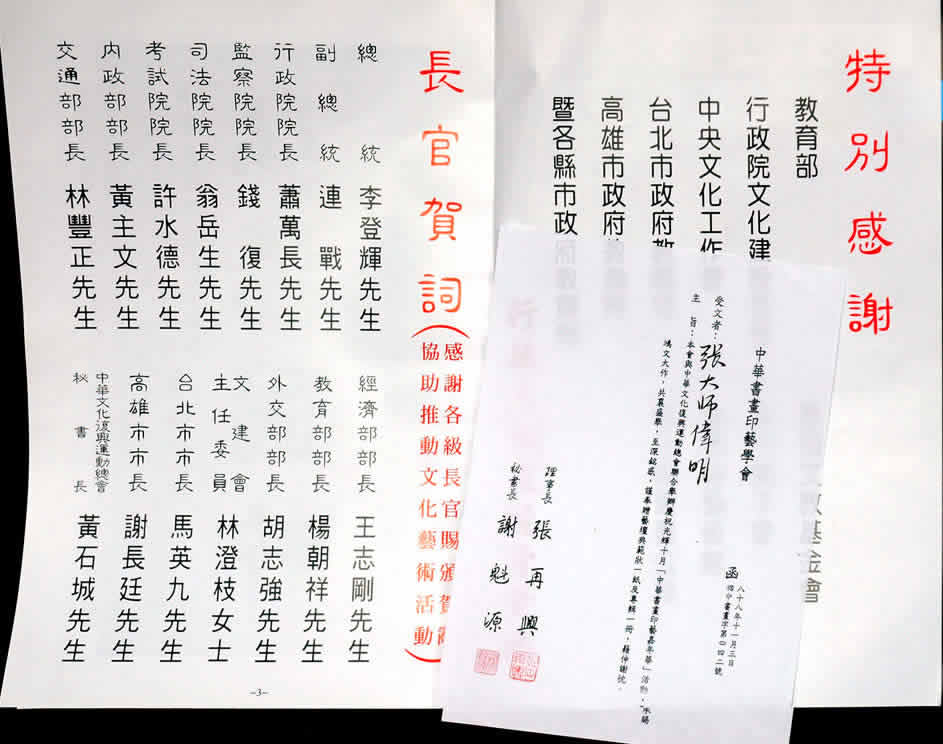 特別感謝
教育部
行政院文化建
中央文化工作
台北市政府教
高雄市政府
暨各縣市政府
基金會
中華書畫印藝學會 函
八十八年十一月三日
受文者：張大師偉明
主旨：本會與中華文化復興運動總會聯合舉辦慶祝光輝十月「中華書畫印藝嘉年華」活動，承賜
鴻文大作，共襄盛舉，至深銘感，謹奉贈藝壇典範狀一紙及專輯一冊，藉伸謝忱。
理事長 張再興
秘書長 謝魁源
長官賀詞
感謝各級長官賜頒賀詞
協助推動文化藝術活動
總統 李登輝先生
副總統 連戰先生
行政院院長 蕭萬長先生
監察院院長 錢復先生
司法院院長 翁岳生先生
考試院院長 許水德先生
內政部部長 黃主文先生
交通部部長 林豐正先生
經濟部部長 王志剛先生
教育部部長 楊朝祥先生
外交部部長 胡志強先生
文建會主任委員 林澄枝女士
台北市市長 馬英九先生
高雄市市長 謝長廷先生
中華文化復興運動總會秘書長 黃石城先生
-3-